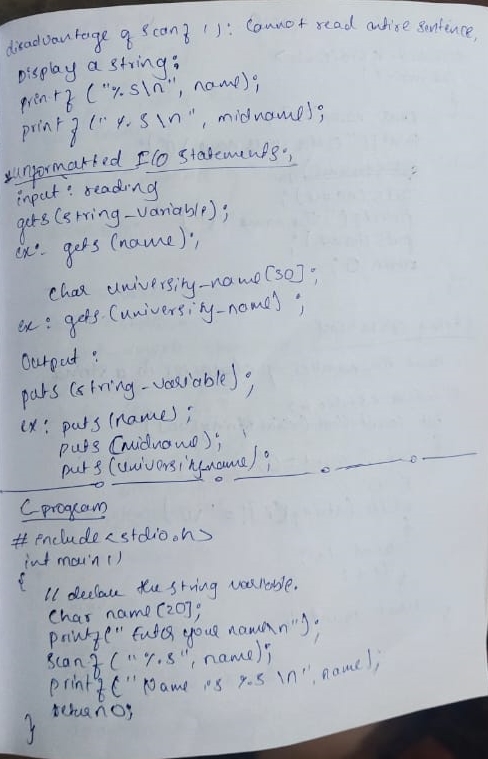 disadvantage of scanf (): Cannot read entire sentence,
Display a string:
printf ("%s\n", name);
printf ("%s\n", midname);
*unformatted I/O statements:,
input: reading
gets (string-variable);
ex:- gets (name);
char university-name[30];
ex: gets (university-name) ;
Output :
puts (string-variable);
ex: puts (name);
puts (midname);
puts (university-name);
C program
# include <stdio.h>
int main ()
{
// declare the string variable.
char name [20];
printf (" Enter your name\n");
scanf ("%s", name);
printf (" Name is %s \n", name);
return 0;
}